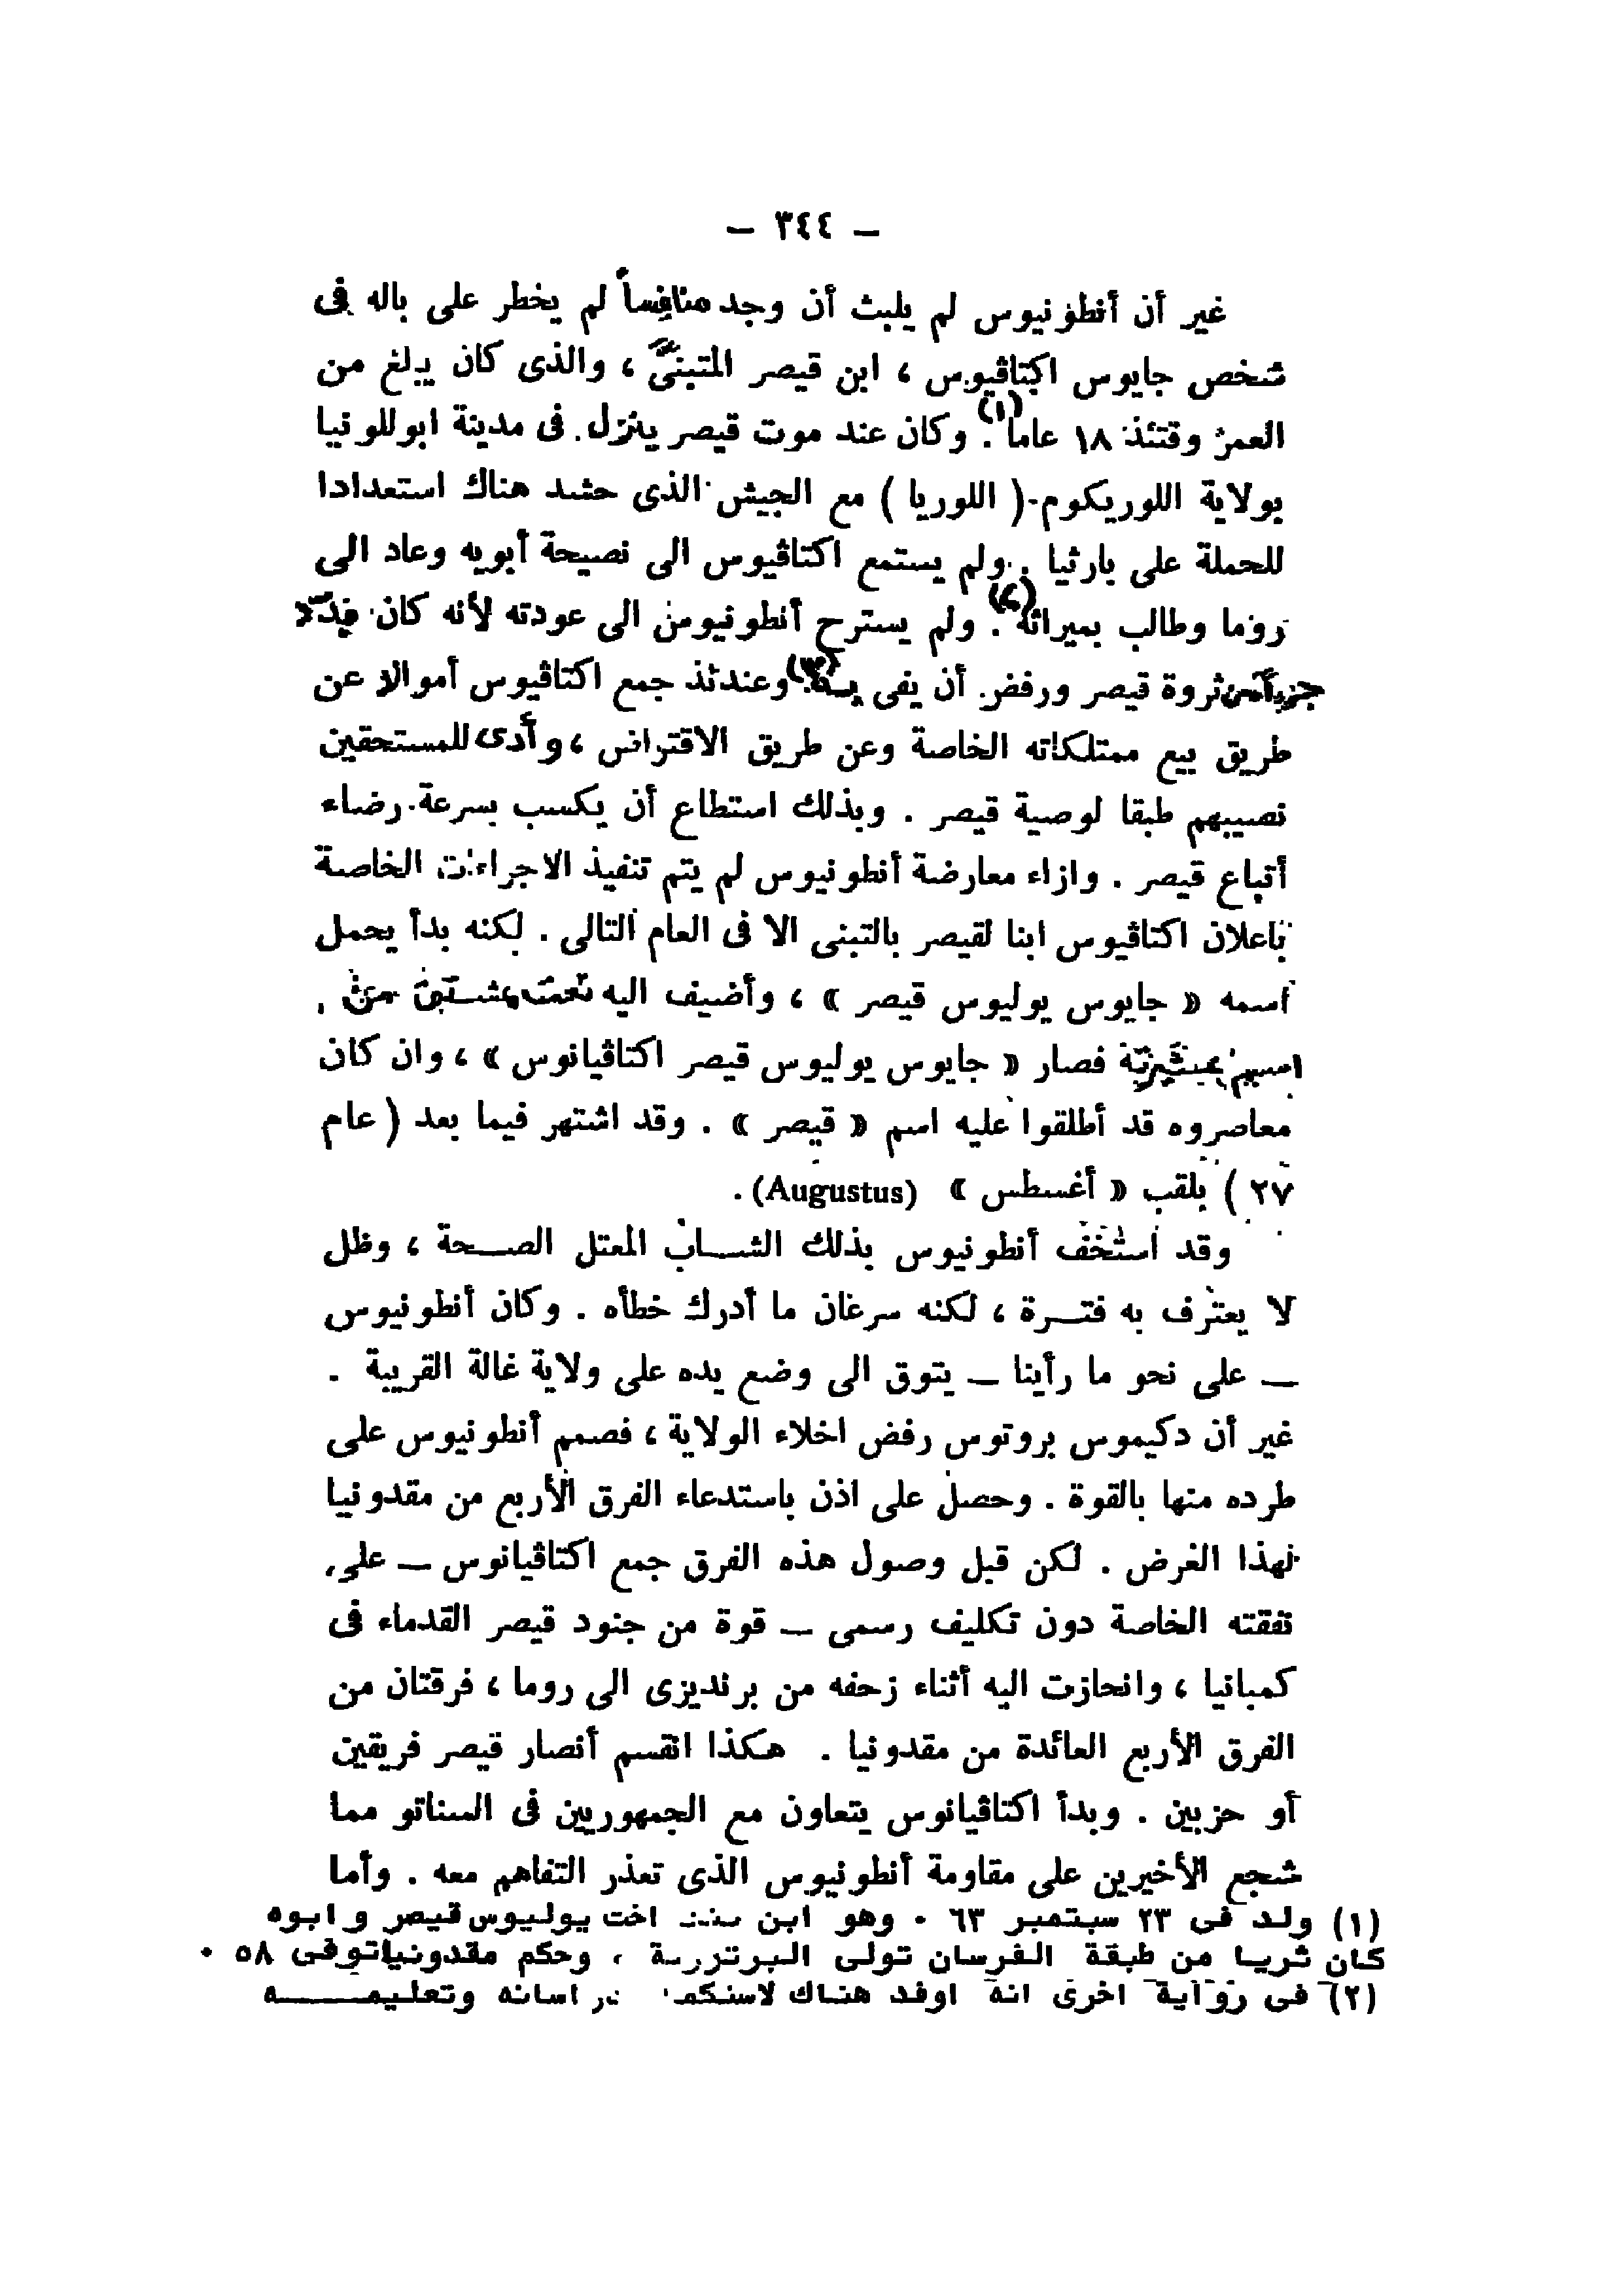 — ٣٤٤ —
غير أن أنطونيوس لم يلبث أن وجد منافساً لم يخطر على باله فى
شخص جايوس اكتاڤيوس ، ابن قيصر المتبنىّ ، والذى كان يبلغ من
العمر وقتئذ ١٨ عاما (١) . وكان عند موت قيصر ينزل فى مدينة ابوللونيا
بولاية اللوريكوم ( اللوريا ) مع الجيش الذى حشد هناك استعدادا
للحملة على بارثيا . ولم يستمع اكتاڤيوس الى نصيحة أبويه وعاد الى
روما وطالب بميراثه (٢) . ولم يسترح أنطونيوس الى عودته لأنه كان بدّد
جزءاً من ثروة قيصر ورفض أن يفى به (٣) . وعندئذ جمع اكتاڤيوس أموالا عن
طريق بيع ممتلكاته الخاصة وعن طريق الاقتراض ، وأدى للمستحقين
نصيبهم طبقا لوصية قيصر . وبذلك استطاع أن يكسب بسرعة رضاء
أتباع قيصر . وازاء معارضة أنطونيوس لم يتم تنفيذ الاجراءات الخاصة
باعلان اكتاڤيوس ابنا لقيصر بالتبنى الا فى العام التالى . لكنه بدأ يحمل
اسمه « جايوس يوليوس قيصر » ، وأضيف اليه نعت مشتق من
اسم عشيرته فصار « جايوس يوليوس قيصر اكتاڤيانوس » ، وان كان
معاصروه قد أطلقوا عليه اسم « قيصر » . وقد اشتهر فيما بعد ( عام
٢٧ ) بلقب « أغسطس » (Augustus) .
وقد استخف أنطونيوس بذلك الشــاب المعتل الصــحة ، وظل
لا يعترف به فتــرة ، لكنه سرعان ما أدرك خطأه . وكان أنطونيوس
— على نحو ما رأينا — يتوق الى وضع يده على ولاية غالة القريبة .
غير أن دكيموس بروتوس رفض اخلاء الولاية ، فصمم أنطونيوس على
طرده منها بالقوة . وحصل على اذن باستدعاء الفرق الأربع من مقدونيا
لهذا الغرض . لكن قبل وصول هذه الفرق جمع اكتاڤيانوس — على
نفقته الخاصة دون تكليف رسمى — قوة من جنود قيصر القدماء فى
كمبانيا ، وانحازت اليه أثناء زحفه من برنديزى الى روما ، فرقتان من
الفرق الأربع العائدة من مقدونيا . هكذا انقسم أنصار قيصر فريقين
أو حزبين . وبدأ اكتاڤيانوس يتعاون مع الجمهوريين فى السناتو مما
شجع الأخيرين على مقاومة أنطونيوس الذى تعذر التفاهم معه . وأما
(١) ولد فى ٢٣ سبتمبر ٦٣ . وهو ابن اخت يوليوس قيصر وابوه
كان ثريا من طبقة الفرسان تولى البرتورية ، وحكم مقدونيا توفى ٥٨ .
(٢) فى رواية اخرى انه اوفد هناك لاستكمال دراساته وتعليمـــه